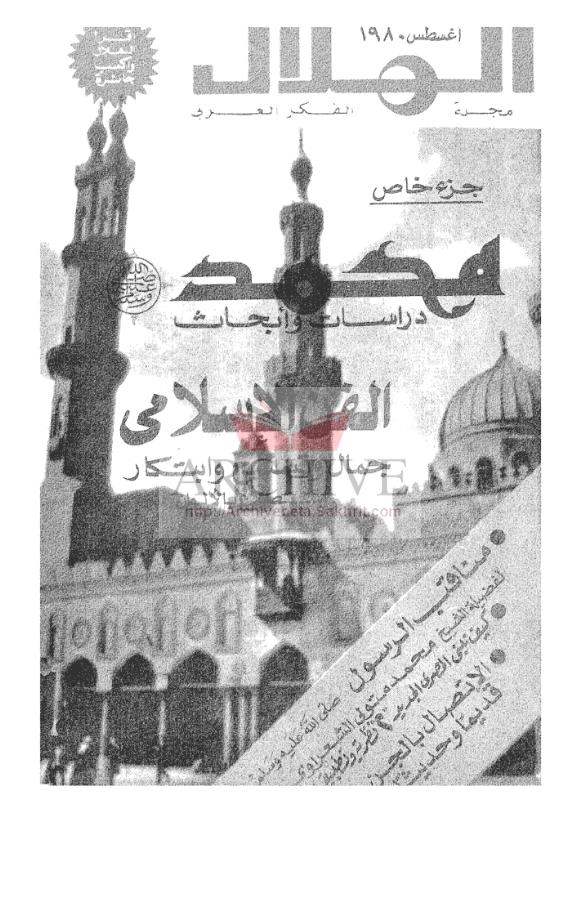 اغسطس ١٩٨٠
الهلال
مجلة الفكر العربى
جزء خاص
محمد
صلى الله عليه وسلم
دراسات وأبحاث
الفن الإسلامى
جمال وابتكار
ARCHIVE
http://Archivebeta.Sakhrit.com
• مناقب الرسول صلى الله عليه وسلم
لفضيلة الشيخ محمد متولى الشعراوى
• كيف نبنى
• الإتصال بالجن
قديما وحديثا